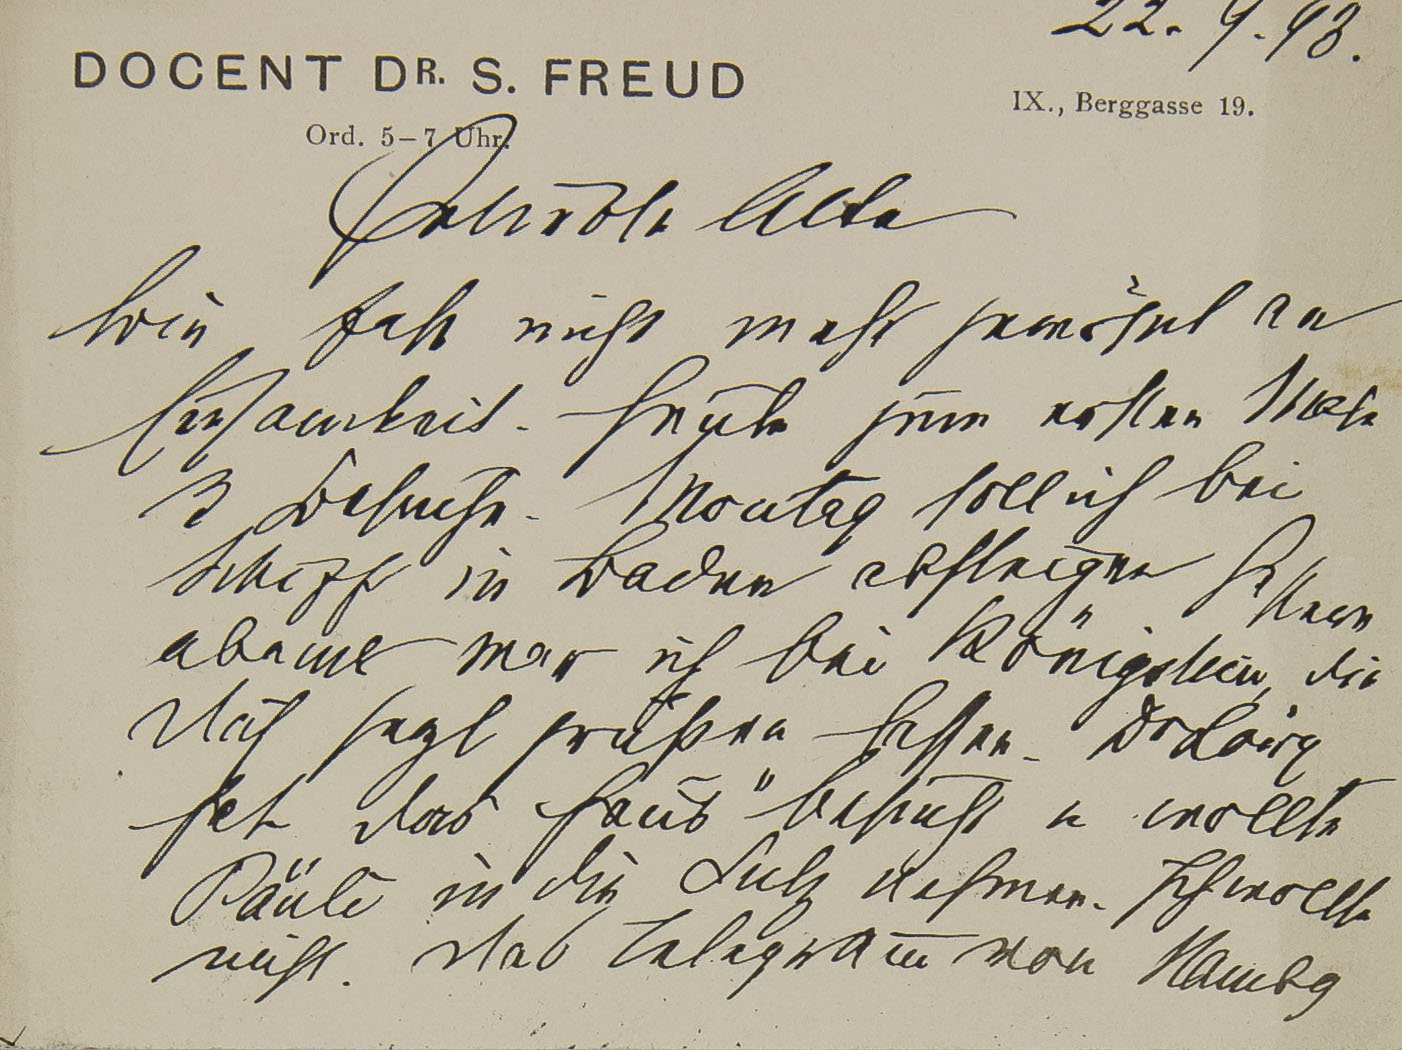 22. 4. 93.
DOCENT DR. S. FREUD
IX., Berggasse 19.
Ord. 5–7 Uhr.
Geliebte Alte
bin fast nicht mehr gewöhnt an
Einsamkeit. Heute zum ersten Male
3 Besuche. Montag soll ich bei
Schiff in Baden absteigen Gestern
abend war ich bei Königstein, die
Dich sehr grüßen lassen. Dr Loiry
hat das Haus besucht u wollte
Päule in die nehmen. Ich wollte
nicht. Das Telegram von Hambg